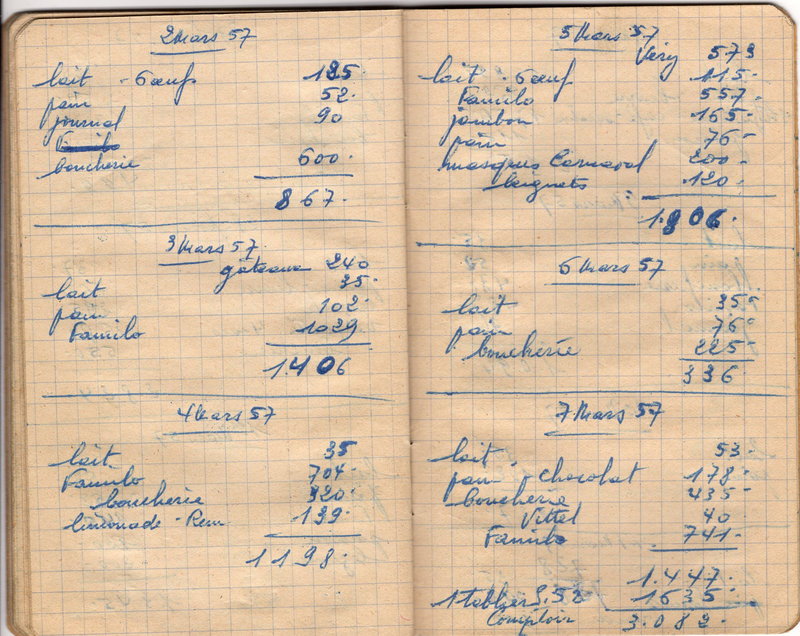 2 Mars 57
lait - 6 œufs 125.
pain 52.
journal 90
Familo
boucherie 600.
867.
3 Mars 57
gâteaux 240
lait 35.
pain 102.
Familo 1029
1.406
4 Mars 57
lait 35
Familo 704.
boucherie 320.
limonade - Rem 139.
1198.
5 Mars 57
Véry 573
lait - 6 œuf 115-
Familo 557.
jambon 165-
pain 76-
masques Carnaval 200-
beignets 120.
1.806.
6 Mars 57
lait 35-
pain 76
boucherie 225-
336
7 Mars 57
lait 53.
pain, chocolat 178.
boucherie 435-
Vittel 40.
Familo 741.
1.447.
1 tablier 1635
Comptoir 3.082.